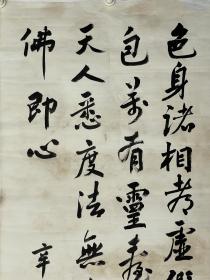 色身諸相考虛
包萬有靈
天人悉度法無
佛即心
辛